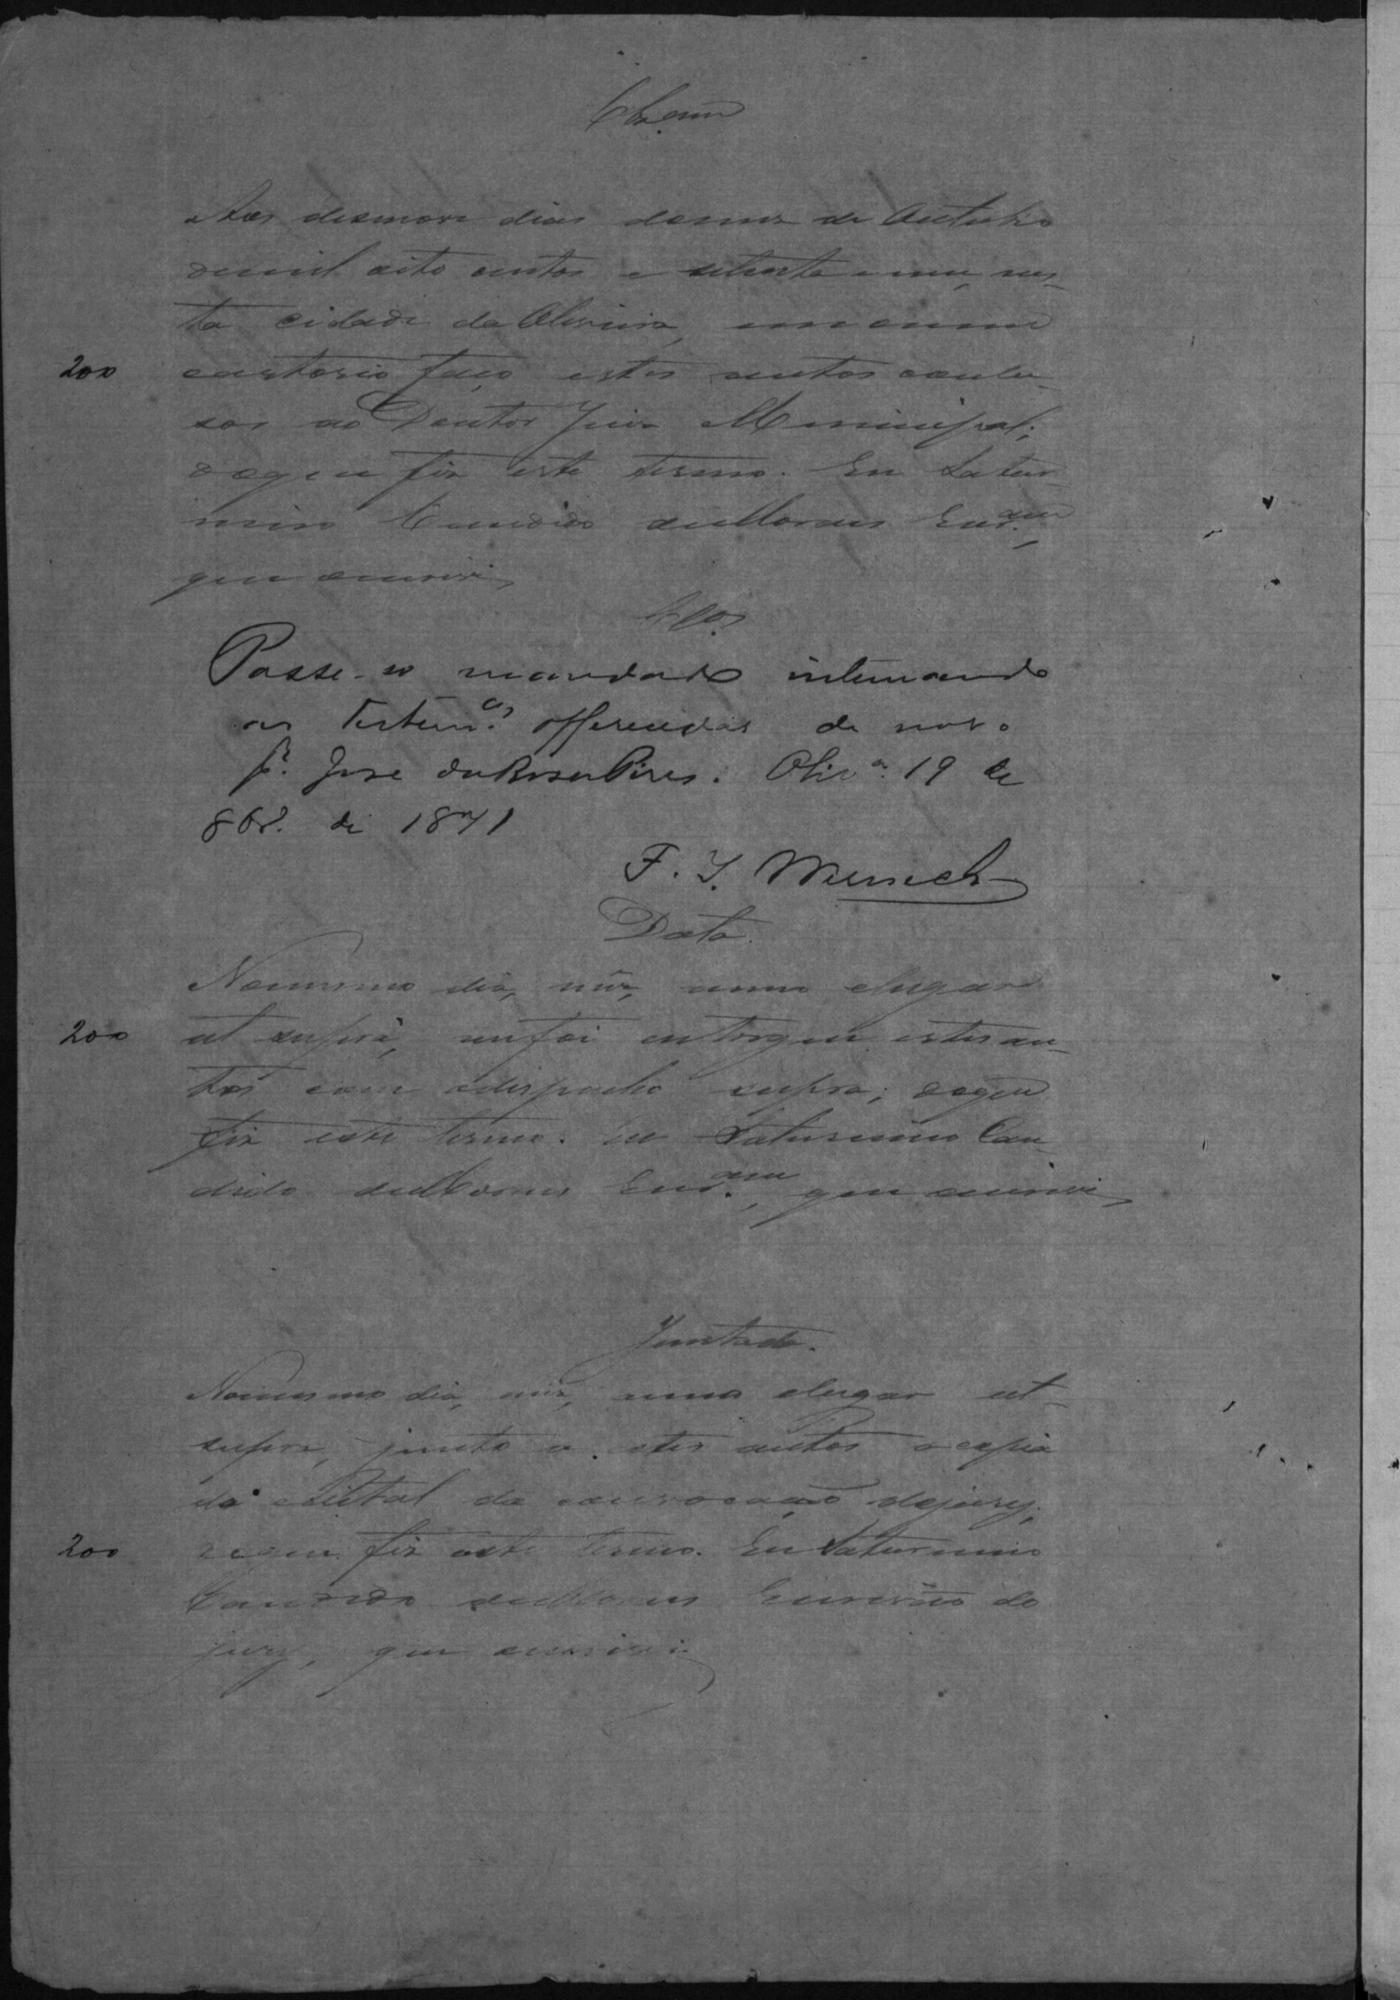 Clzam
Aos desenove dias domez de Outubro
demil oito centos e setenta e um, nes-
ta cidade da Oliveira, em o meu
200 cartorio faço estes autos conclu-
sos ao Doutor Juiz Municipal;
doque fiz este termo. Eu Satur-
nino Candido de Moraes Escr.am,
que escrevi,
Clos
Passe-se mandado intimando
as testem.as offerecidas de novo
pr. José da Rosa Pires. Oliv.a 19 de
8br.o de 1871
F. J.
Data.
Nomesmo dia, mez, anno elugar
200 ut supra, me foi entregue estes au-
tos com odespacho supra; doque
fiz este termo. Eu Saturnino Can-
dido de Moraes Escr.am, que escrevi,
Juntada.
Nomesmo dia, mez, anno elugar ut
supra, junto a estes autos a copia
do edital da convocação dojury;
200 doque fiz este termo. Eu Saturnino
Candido de Moraes Escrivão do
jury, que escrevi